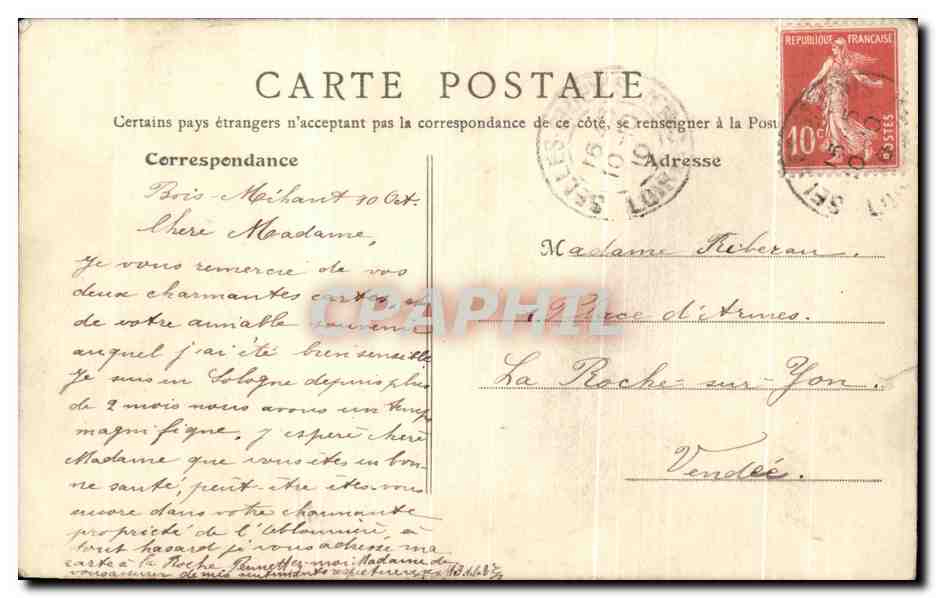 CARTE POSTALE
Certains pays étrangers n'acceptent pas la correspondance de ce côté, se renseigner à la Post
Correspondance
Adresse
REPUBLIQUE FRANÇAISE
10c POSTES
Bois-Méhant 10 Oct.
Chère Madame,
Je vous remercie de vos
deux charmantes cartes, et
de votre aimable souvenir
auquel j'ai été bien sensible
Je suis en Sologne depuis plus
de 2 mois nous avons un temps
magnifique, j'espère chère
Madame que vous êtes en bon-
ne santé, peut-être êtes-vous
encore dans votre charmante
propriété de l'
tout hasard je vous adresse ma
carte à la Roche Permettez-moi Madame de
Madame Riberau.
Place d'Armes.
La Roche-sur-Yon.
Vendée.
SELLES
CPAPHIL